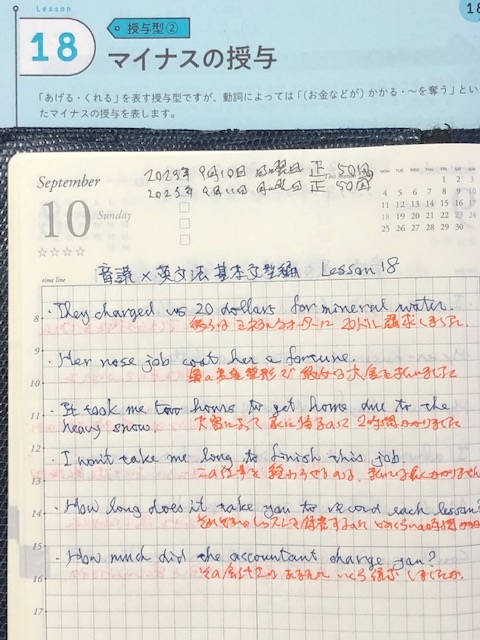 Lesson
18
授与型②
マイナスの授与
「あげる・くれる」を表す授与型ですが、動詞によっては「(お金などが)かかる・〜を奪う」とい
たマイナスの授与を表します。
18
2023年 9月10日 日曜日 正 50回
2023年 9月11日 月曜日 正 50回
September
10 Sunday
MON TUE WED THU FRI SAT SUN
1 2 3
4 5 6 7 8 9 10
11 12 13 14 15 16 17
18 19 20 21 22 23 24
25 26 27 28 29 30
音読×英文法 基本文型編 Lesson 18
time line
8
・They charged us 20 dollars for mineral water.
彼らはミネラルウォーターに20ドル請求しました。
9
・Her nose job cost her a fortune.
10
11
・It took me two hours to get home due to the
heavy snow.
大雪によって家に帰るのに2時間かかりました
12
・I won't take me long to finish this job.
この仕事を終わらせるのは、私には長くかかりません
13
・How long does it take you to record each lesson?
14
15
・How much did the accountant charge you?
16
その会計士はあなたにいくら請求しましたか
17